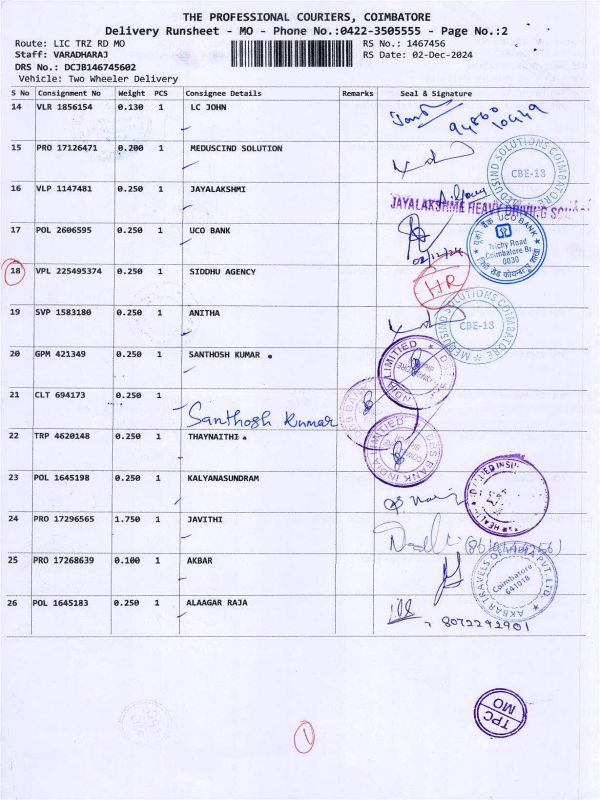 THE PROFESSIONAL COURIERS, COIMBATORE
Delivery Runsheet - MO - Phone No.:0422-3505555 - Page No.:2
Route: LIC TRZ RD MO RS No.: 1467456
Staff: VARADHARAJ RS Date: 02-Dec-2024
DRS No.: DCJB146745602
Vehicle: Two Wheeler Delivery
S No Consignment No Weight PCS Consignee Details Remarks Seal & Signature
14 VLR 1856154 0.130 1 LC JOHN
15 PRO 17126471 0.200 1 MEDUSCIND SOLUTION
MEDUSIND SOLUTIONS COIMBATORE
CBE-18
16 VLP 1147481 0.250 1 JAYALAKSHMI
JAYALAKSHME HEAVY DRIVING
17 POL 2606595 0.250 1 UCO BANK
02/12/24
यूको बैंक UCO BANK
Trichy Road
Coimbatore Br.
0030
18 VPL 225495374 0.250 1 SIDDHU AGENCY
HR
19 SVP 1583180 0.250 1 ANITHA
MEDUSIND SOLUTIONS COIMBATORE
CBE-18
20 GPM 421349 0.250 1 SANTHOSH KUMAR
21 CLT 694173 0.250 1
Santhosh Kumar
22 TRP 4620148 0.250 1 THAYNAITHI
DBS BANK INDIA LIMITED
23 POL 1645198 0.250 1 KALYANASUNDRAM
24 PRO 17296565 1.750 1 JAVITHI
25 PRO 17268639 0.100 1 AKBAR
AKBAR TRAVELS OF INDIA PVT. LTD.
Coimbatore
641018
26 POL 1645183 0.250 1 ALAAGAR RAJA
8072292901
TPC
MO
1